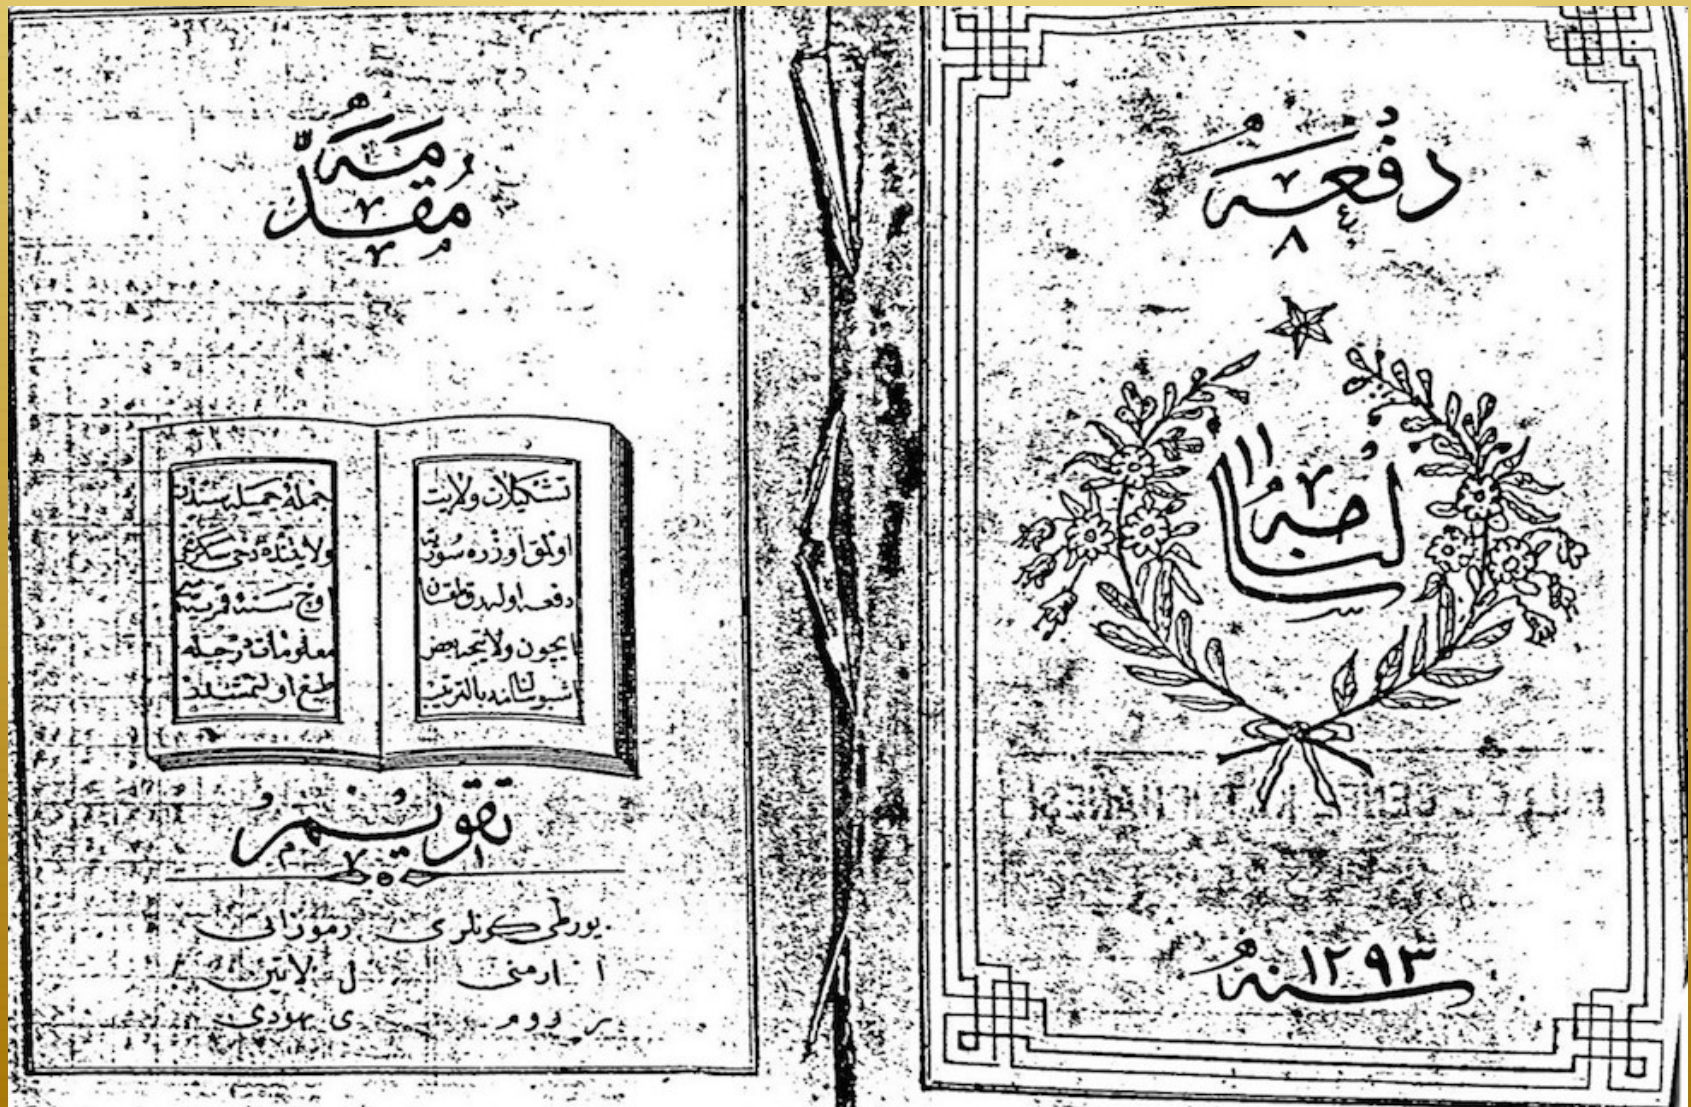 دفعه
٨
سالنامه
سنه ١٢٩٣
مقدمه
تشكيلات ولايت
اولمق اوزره سوريه
دفعه اوله رق
ايچون ولايتجه
اشبو سالنامه بالترتيب
جمله جميله سندن
ولايتنده دخى سكزنجى
اوچ سنه قمريه
معلومات درجيله
طبع اولنمشدر
تقويم
يورطى كونلرى رموزاتى
ا ارمنى ل لاتين
ر روم ى يهودى